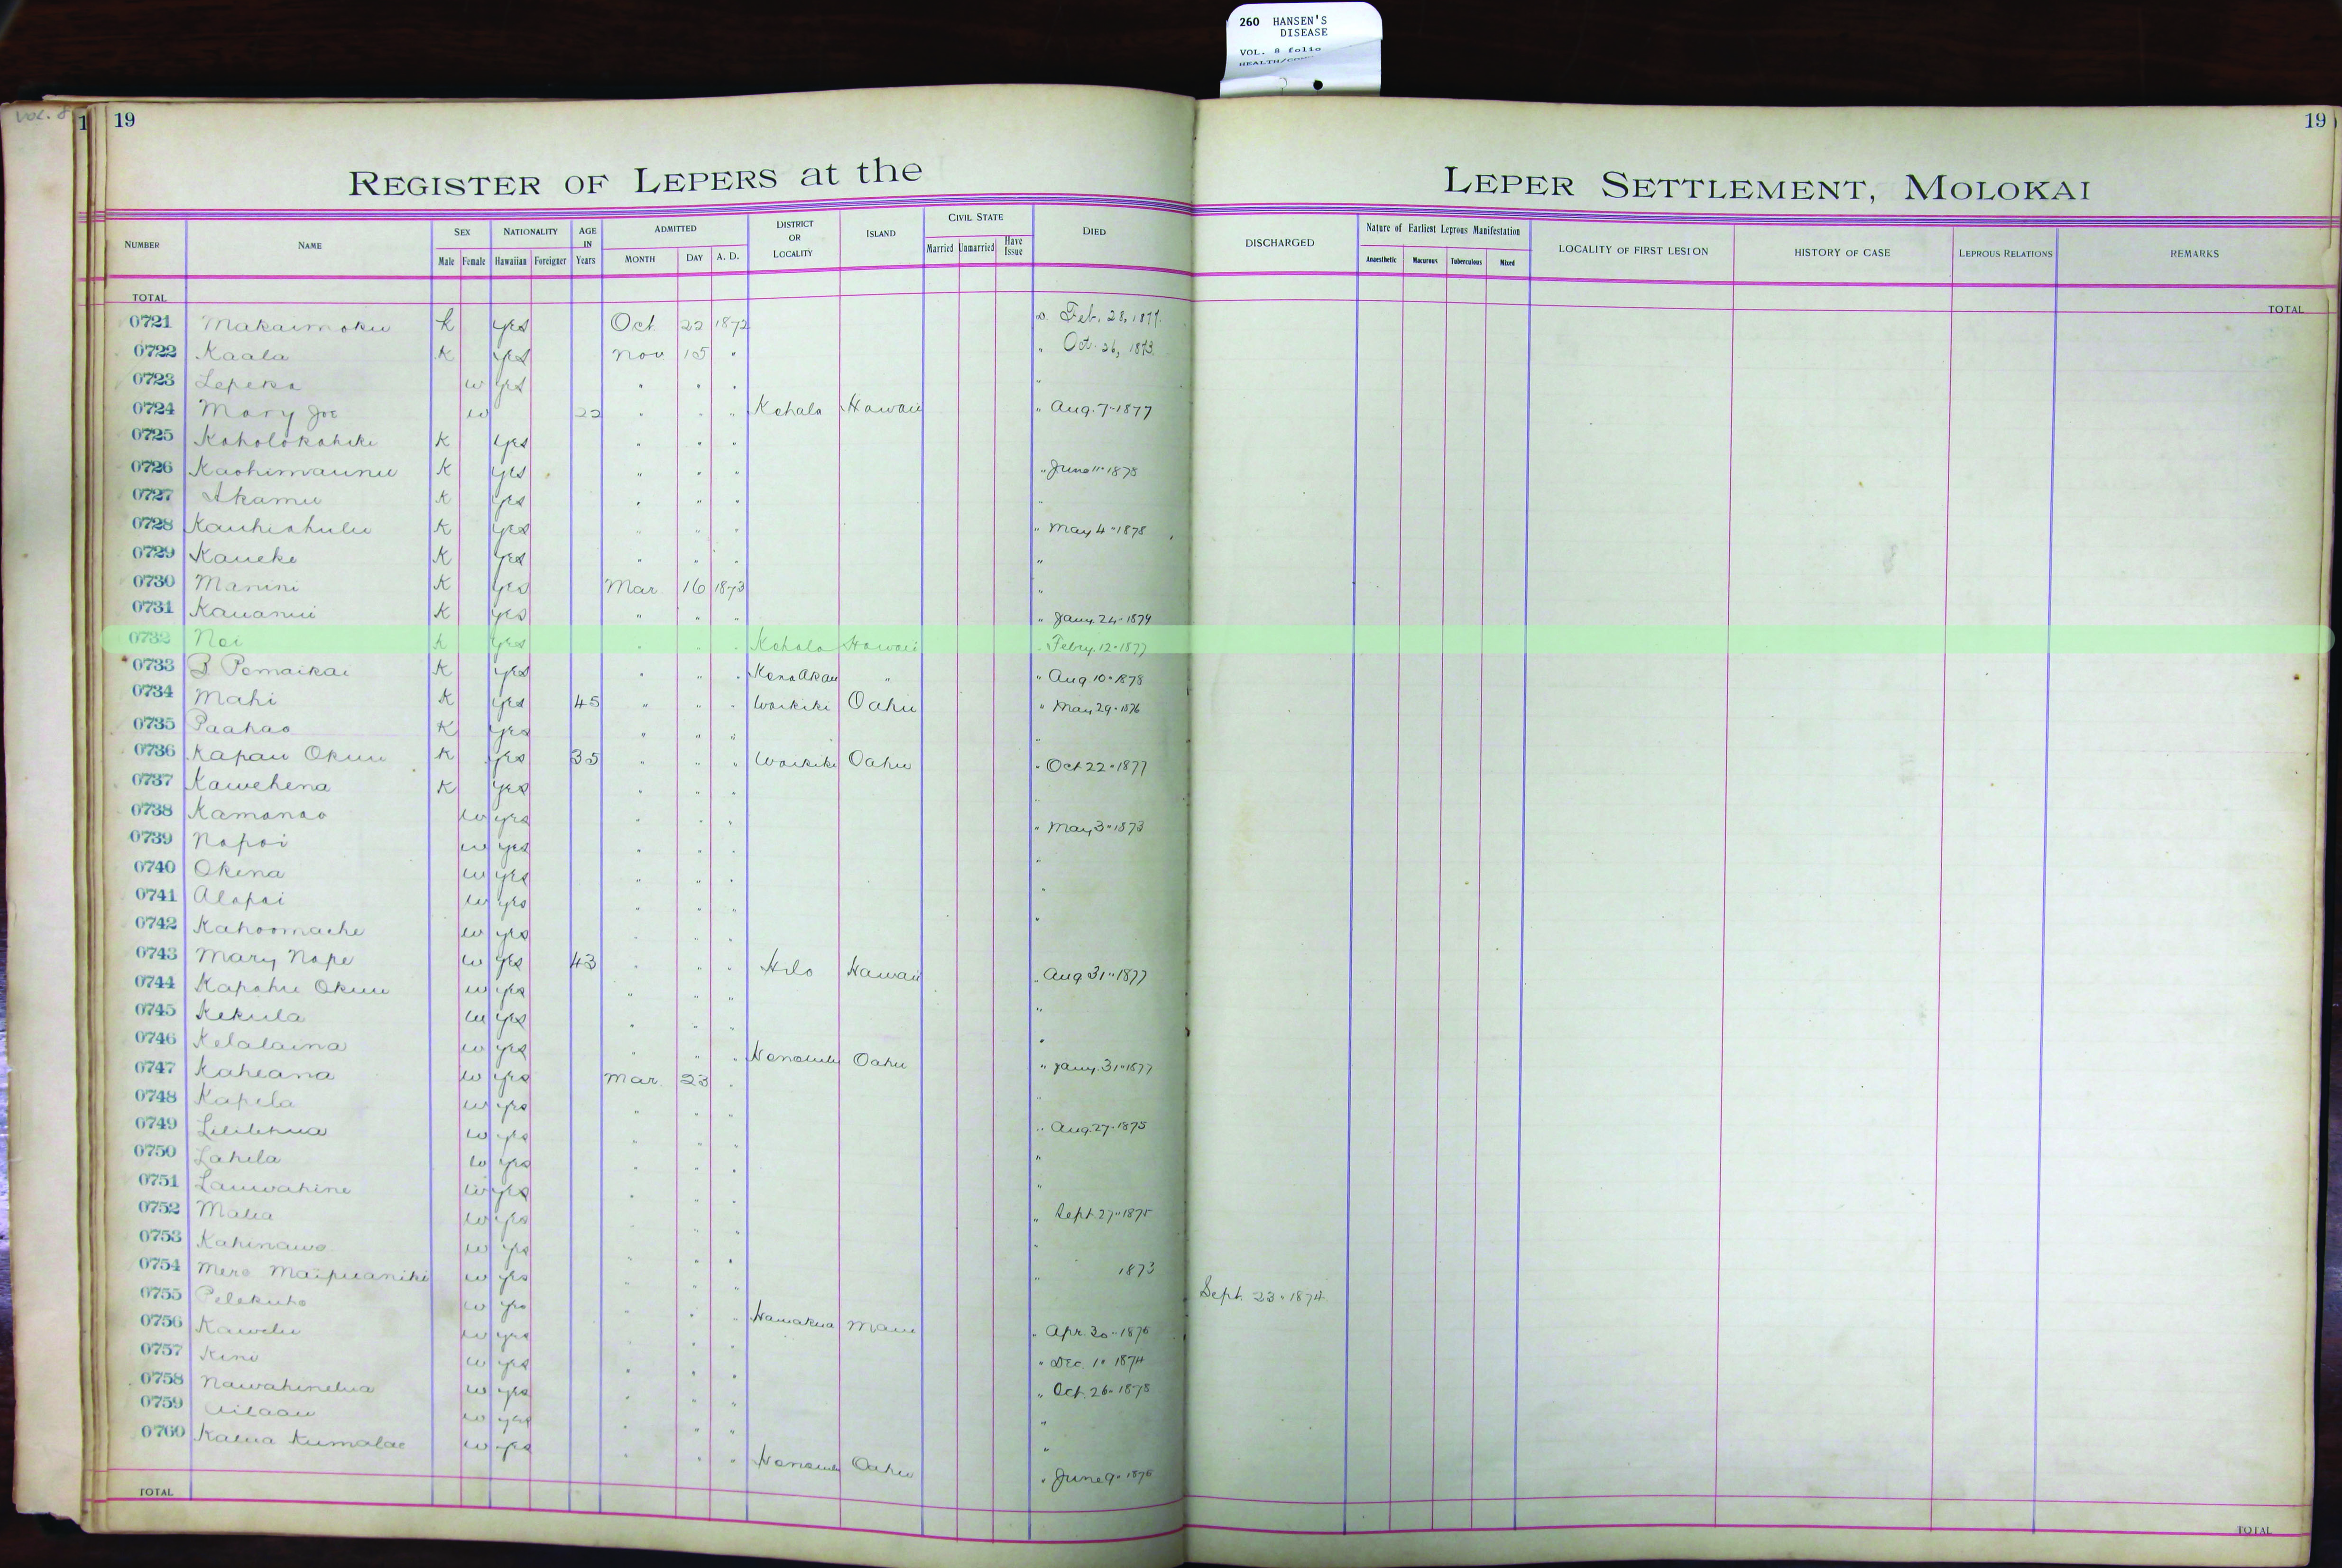 260 HANSEN'S
DISEASE
VOL. 8 folio
VOL. 8
1 19 19
REGISTER OF LEPERS at the LEPER SETTLEMENT, MOLOKAI
NUMBER NAME SEX NATIONALITY AGE IN Years ADMITTED DISTRICT OR LOCALITY ISLAND CIVIL STATE DIED DISCHARGED Nature of Earliest Leprous Manifestation LOCALITY OF FIRST LESION HISTORY OF CASE LEPROUS RELATIONS REMARKS
Male Female Hawaiian Foreigner MONTH DAY A. D. Married Unmarried Have Issue Anaesthetic Macurous Tuberculous Mixed
TOTAL TOTAL
0721 Makaimoku k yes Oct 22 1872 Feb. 28, 1877.
0722 Kaala K yes Nov 15 " " Oct. 26, 1873.
0723 Lepeka w yes " " " "
0724 Mary Joe w 22 " " " Kohala Hawaii " Aug. 7 1877
0725 Koholokahiki K yes " " "
0726 Kaohimaunu K yes " " " " June 11 1878
0727 Akamu K yes " " " "
0728 Kauhiahulu K yes " " " " May 4 1878
0729 Kaueke K yes " " " "
0730 Manini K yes Mar 16 1873 "
0731 Kauanui K yes " " " " Jany. 24 1879
0732 Noi K yes " " " Kohala Hawaii " Febry. 12 1877
0733 B Pomaikai K yes " " " Kona Akau " " Aug 10 1878
0734 Mahi K yes 45 " " " Waikiki Oahu " May 29 1876
0735 Paahao K yes " " " "
0736 Kapau Okuu K yes 35 " " " Waikiki Oahu " Oct 22 1877
0737 Kawehena K yes " " " "
0738 Kamanao w yes " " " " May 3 1873
0739 Napoi w yes " " " "
0740 Okena w yes " " " "
0741 Alapai w yes " " " "
0742 Kahoomache w yes " " "
0743 Mary Nape w yes 43 " " " Hilo Hawaii " Aug 31 1877
0744 Kapahu Okuu w yes " " " "
0745 Kekula w yes " " " "
0746 Kelalaina w yes " " " Honolulu Oahu " Jany. 31 1877
0747 Kaheana w yes Mar. 23 " "
0748 Kapela w yes " " " " Aug. 27 1875
0749 Lililehua w yes " " " "
0750 Lahela w yes " " " "
0751 Lauwahine w yes " " " " Sept. 27 1875
0752 Malia w yes " " " "
0753 Kahinawe w yes " " " " 1873
0754 Mere Maipuaniki w yes " " " Sept. 23 1874
0755 Pelekuho w yes " " " Hamakua Maui " Apr. 30 1876
0756 Kawelu w yes " " " " Dec. 1 1874
0757 Kini w yes " " " " Oct. 26 1878
0758 Nawahinelua w yes " " " "
0759 Ailaau w yes " " " "
0760 Kalua Kumalae w yes " " " Honolulu Oahu " June 9 1876
TOTAL TOTAL